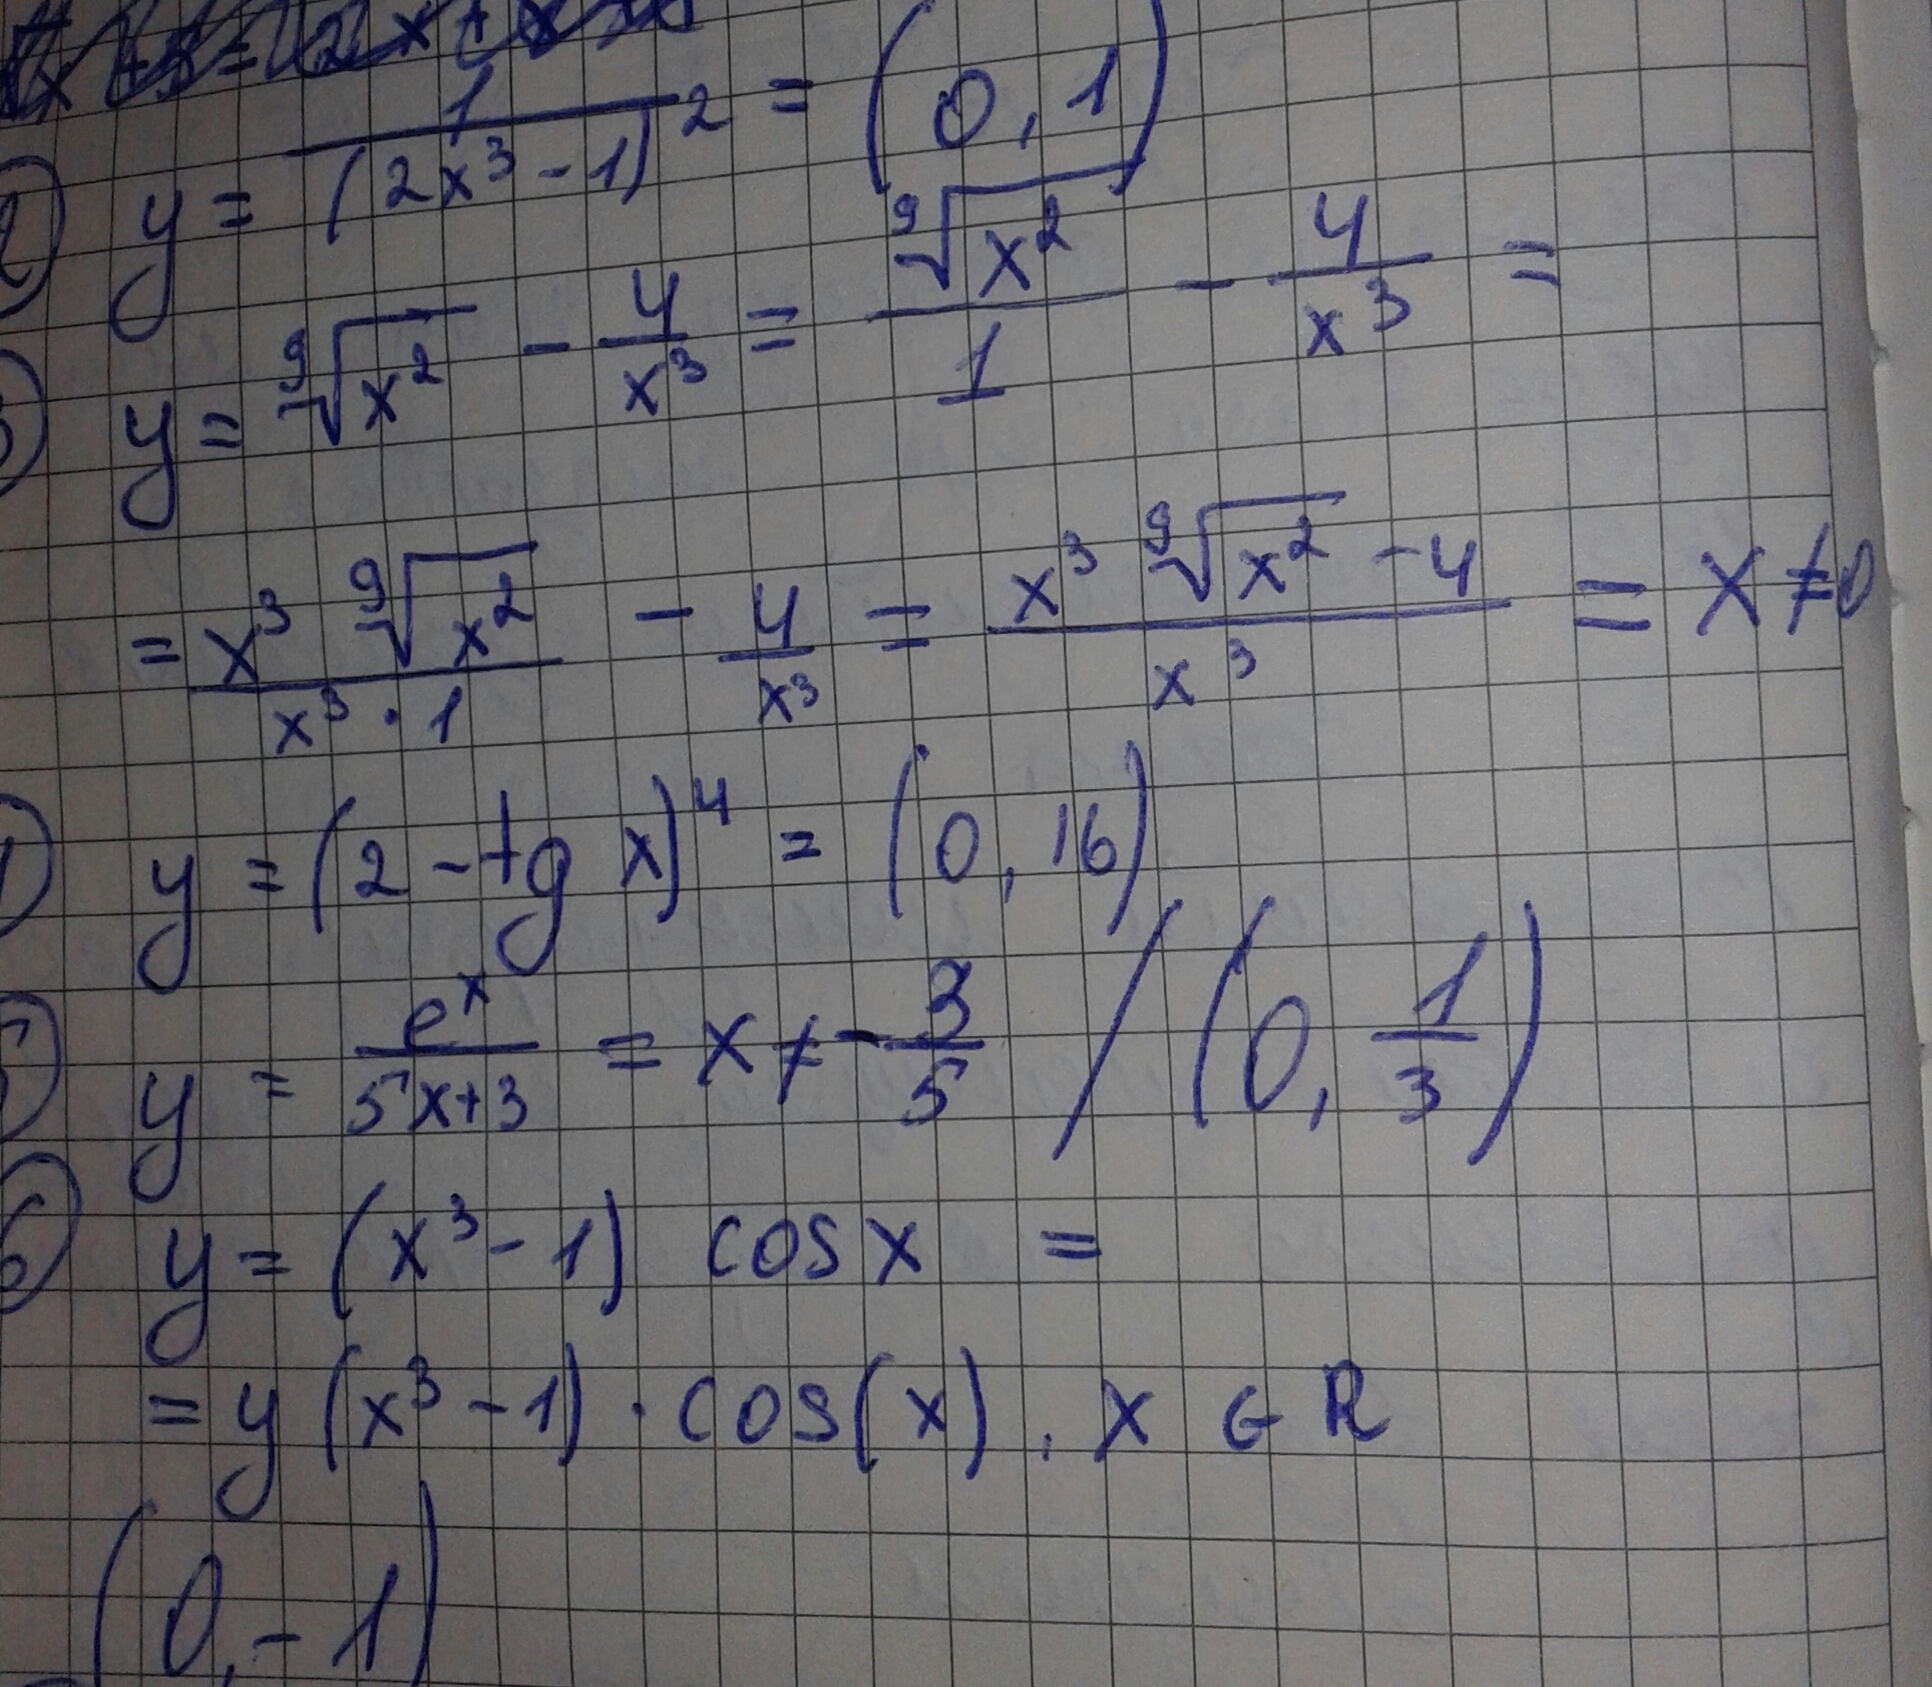 ② y = 1/(2x³-1)² = (0, 1)
③ y = ⁹√x² - 4/x³ = ⁹√x²/1 - 4/x³ =
= x³ ⁹√x²/x³·1 - 4/x³ = x³ ⁹√x² - 4/x³ = x ≠ 0
y = (2 - tg x)⁴ = (0, 16)
⑤ y = eˣ/5x+3 = x ≠ - 3/5 / (0, 1/3)
⑥ y = (x³ - 1) cos x =
= y (x³ - 1) · cos(x), x ∈ R
(0, -1)